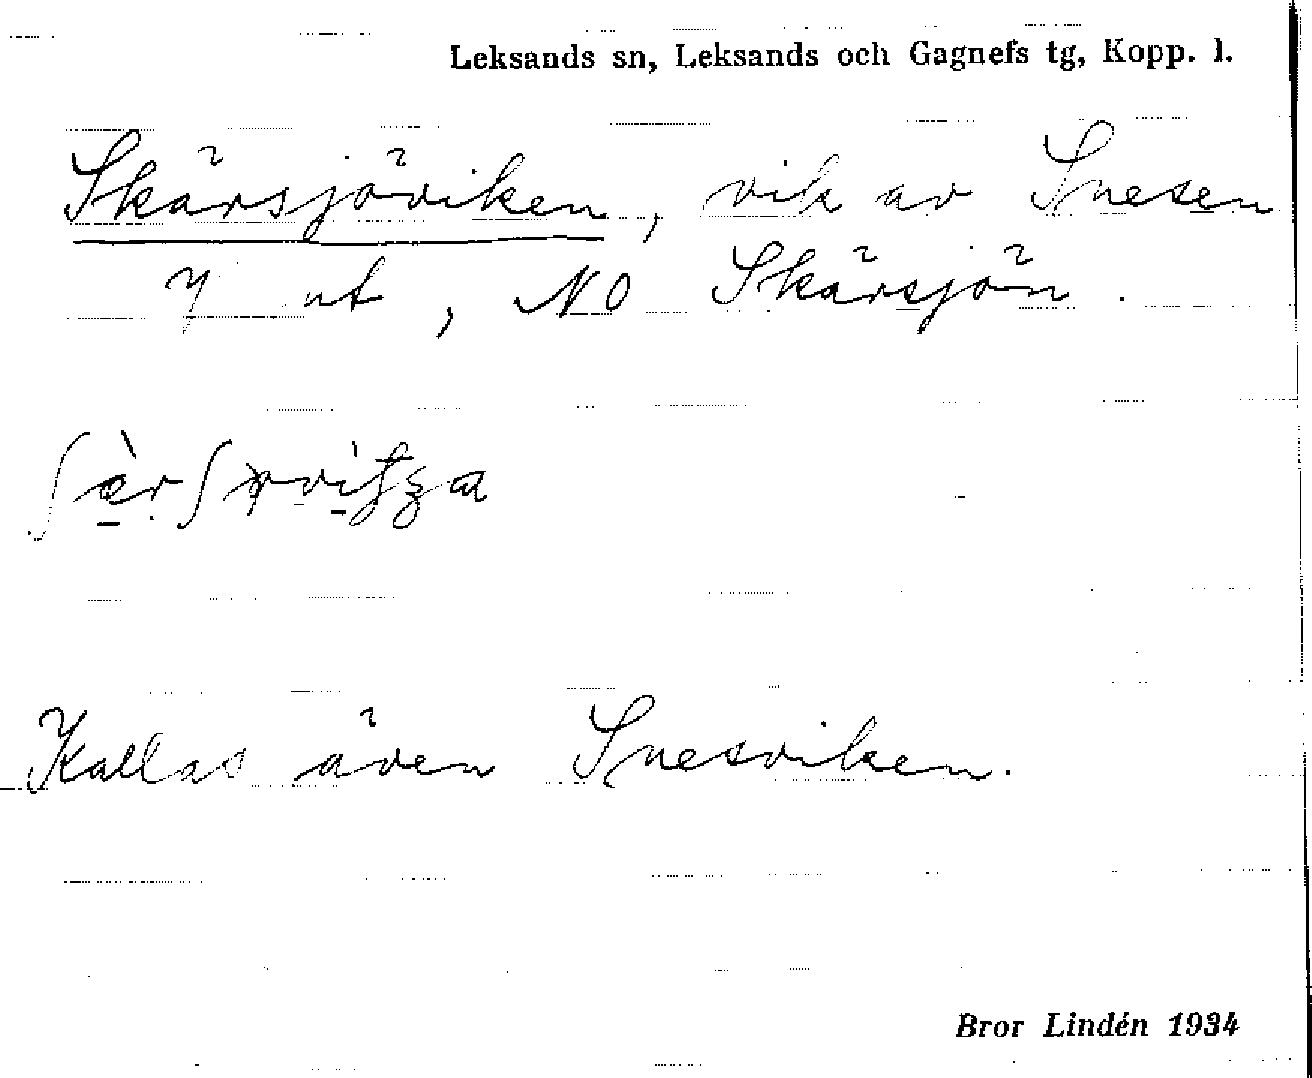 Leksands sn, Leksands och Gagnefs tg, Kopp. l.
Skärsjöviken, vik av Snesen
ut, NO Skärsjön.
Kallas även Snesviken.
Bror Lindén 1934